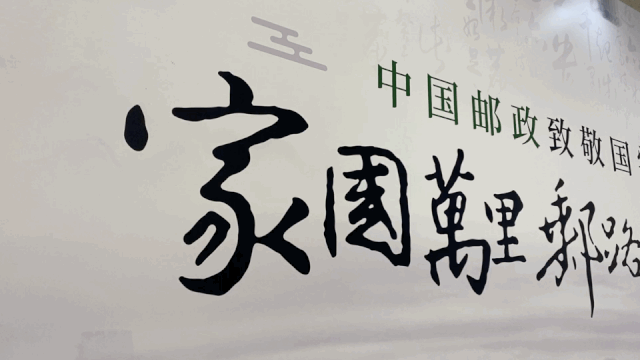 中国邮政致敬国
家國萬里郵路